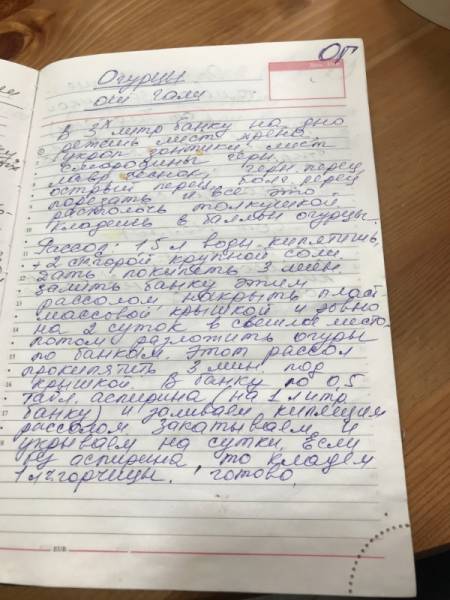 ОГ
Огурцы
от Гали
В 3х литр банку на дно
ветень лист хрена
укроп зонтики, лист
смородины черн.
лавр чеснок, черн. перец,
острый перец,
порезать и все это
растолочь толкушкой
Кладешь в баллон огурцы.
Рассол: 1,5 л воды кипятишь,
+2 с горой крупной соли.
дать покипеть 3 мин.
залить банку этим
рассолом, накрыть пласт
массовой крышкой и ровно
на 2 суток в светлое место
потом разложить огурцы
по банкам. Этот рассол
прокипятить 3 мин под
крышкой. В банку по 0,5
табл. аспирина (на 1 литр.
банку) и заливаем кипящим
рассолом закатываем и
укрываем на сутки. Если
без аспирина, то кладем
1 л горчицы. готово.